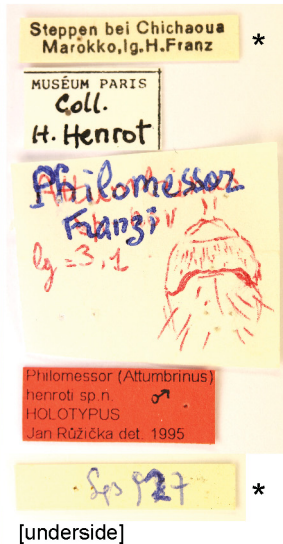 Steppen bei Chichaoua
Marokko,lg.H.Franz
*
MUSÉUM PARIS
Coll.
H. Henrot
Philomessor
Franzi
lg = 3,1
Philomessor (Attumbrinus)
henroti sp.n. ♂
HOLOTYPUS
Jan Růžička det. 1995
*
[underside]